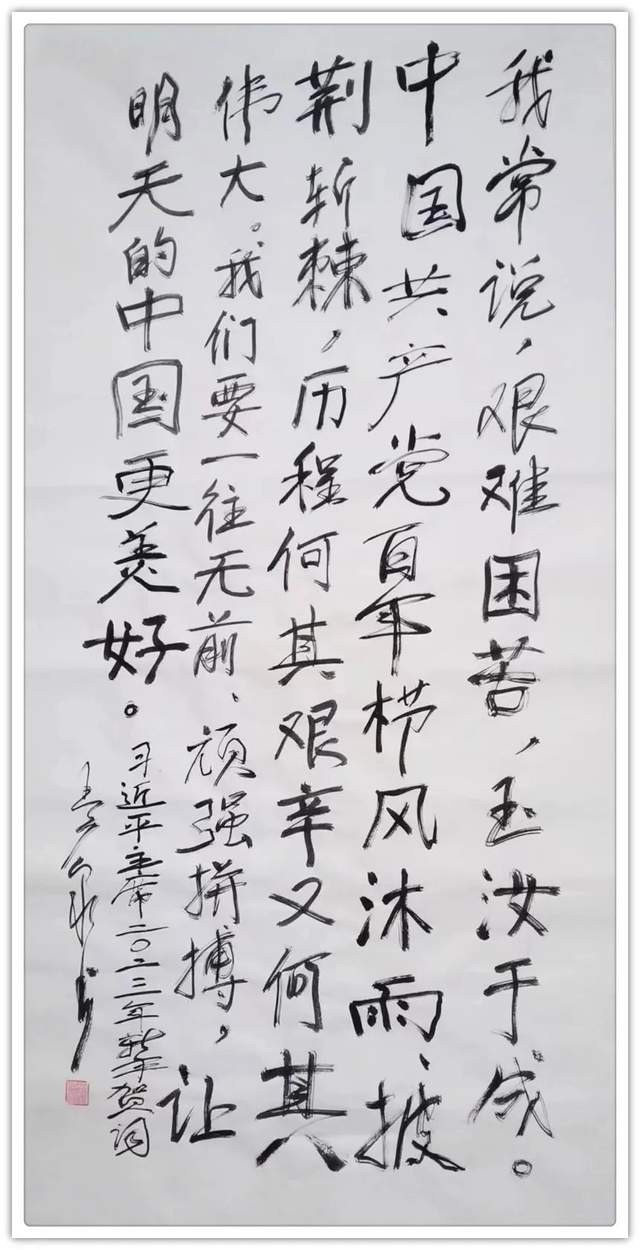 我常说，艰难困苦，玉汝于成。
中国共产党百年栉风沐雨、披
荆斩棘，历程何其艰辛又何其
伟大。我们要一往无前、顽强拼搏，让
明天的中国更美好。
习近平主席二〇二三年新年贺词